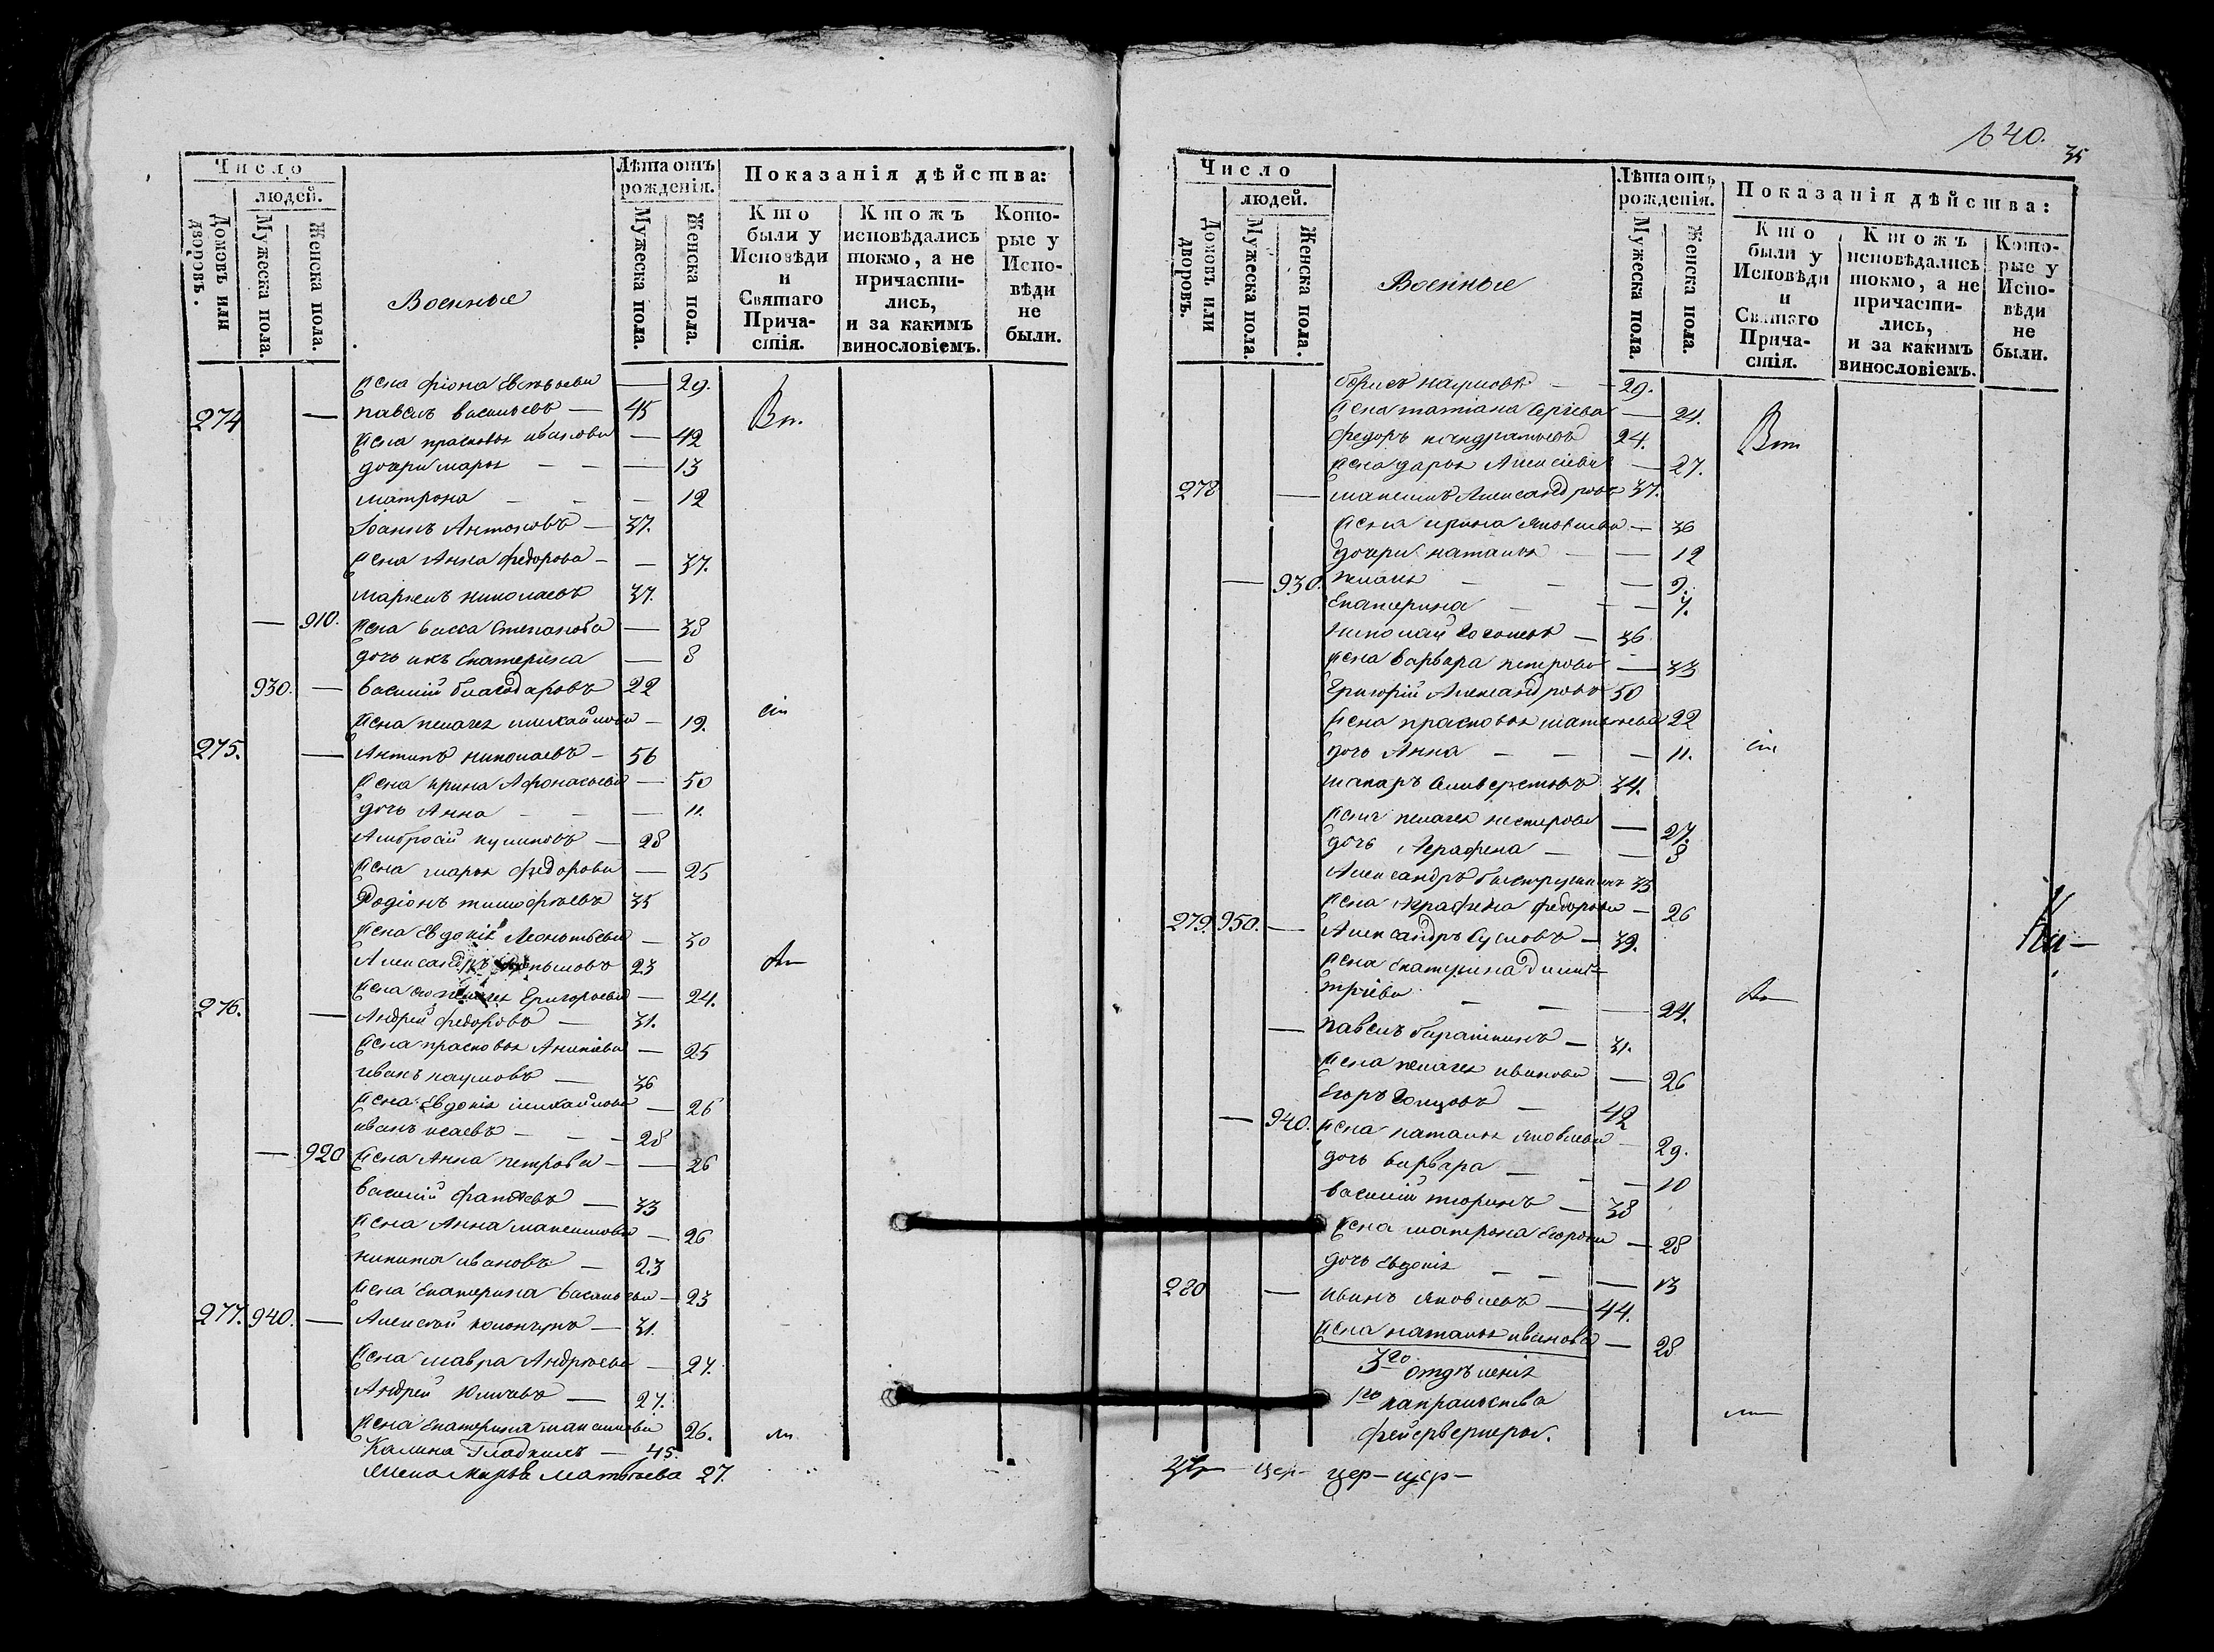 Число
людей.
Домовъ или дворовъ.
Мужеска пола.
Женска пола.
Военные
Лѣта отъ рожденія.
Мужеска пола.
Женска пола.
Показанія дѣйства:
Кто были у Исповѣди и Святаго Причастія.
Ктожъ исповѣдались токмо, а не причастились, и за какимъ винословіемъ.
Которые у Исповѣди не были.
жена фіона Евтѣева — 29. Вт.
274 — павелъ васильевъ — 45
жена прасковья иванова — 42
дочери марья — — — 13
матрона — — — 12
Іоаннъ Антоновъ — 37.
жена Анна федорова — — 37.
николаевъ 37.
— 910. жена васса Степанова — 38
дочь ихъ Екатерина — 8
930. — василій благодаровъ 22
жена пелагея михайлова — 19.
275. — Антипъ николаевъ — 56
жена ирина Афонасьева — 50
дочь Анна — — — 11.
Амбросій куликовъ — 28
жена марья федорова — 25
Родіонъ тимофѣевъ 35
жена Евдокія Леонтьева — 30
Александръ 23
жена пелагея Григорьева — 24.
276. — Андрей федоровъ — 31.
жена прасковья Аникіева — 25
иванъ наумовъ — 36
жена Евдокія михайлова — 26
иванъ исаевъ — — — 28
— 920 жена Анна петрова — — 26
василій — 33
жена Анна максимова — 26
никита ивановъ — 23
жена Екатерина васильева — 23
277. 940. — Алексѣй — 31.
жена мавра Андреева — 27.
Андрей — 27.
жена Екатерина максимова 26.
Калина Гладкихъ — 45.
жена Марѳа Матвѣева 27.
640.
35
Число
людей.
Домовъ или дворовъ.
Мужеска пола.
Женска пола.
Военные
Лѣта отъ рожденія.
Мужеска пола.
Женска пола.
Показанія дѣйства:
Кто были у Исповѣди и Святаго Причастія.
Ктожъ исповѣдались токмо, а не причастились, и за какимъ винословіемъ.
Которые у Исповѣди не были.
борисъ наумовъ — — 29.
жена татіана Сергіева — 24. Вт
федоръ кондратьевъ 24.
жена дарья Алексіева — 27.
278 — максимъ Александровъ 37.
жена ирина яковлева — 36
дочери наталья — — 12
— 930. пелагея — — — 9.
Екатерина — — — 7.
николай — 36
жена варвара петрова — 33
Григорій Александровъ 50
жена прасковья матвѣева 22
дочь Анна — — — 11.
макаръ Селиверстовъ 34.
жена пелагея нестерова — 27.
дочь Аграфена — — 3
Александръ 33
жена Аграфена федорова — 26
279. 950. — Александръ Сусловъ — 39.
жена Екатерина Димитріева — — — 24.
— павелъ барашкинъ — 31.
жена пелагея иванова — 26
Егоръ — 42
— 940. жена наталья яковлева — 29.
дочь варвара — — — 10
василій тюринъ — 38
жена матрона Егорова — 28
дочь Евдокія — — — 13
280 — иванъ яковлевъ — 44.
жена наталья иванова — 28
3го отдѣленія
1го капральства
фейерверкеры.
цер— цер—